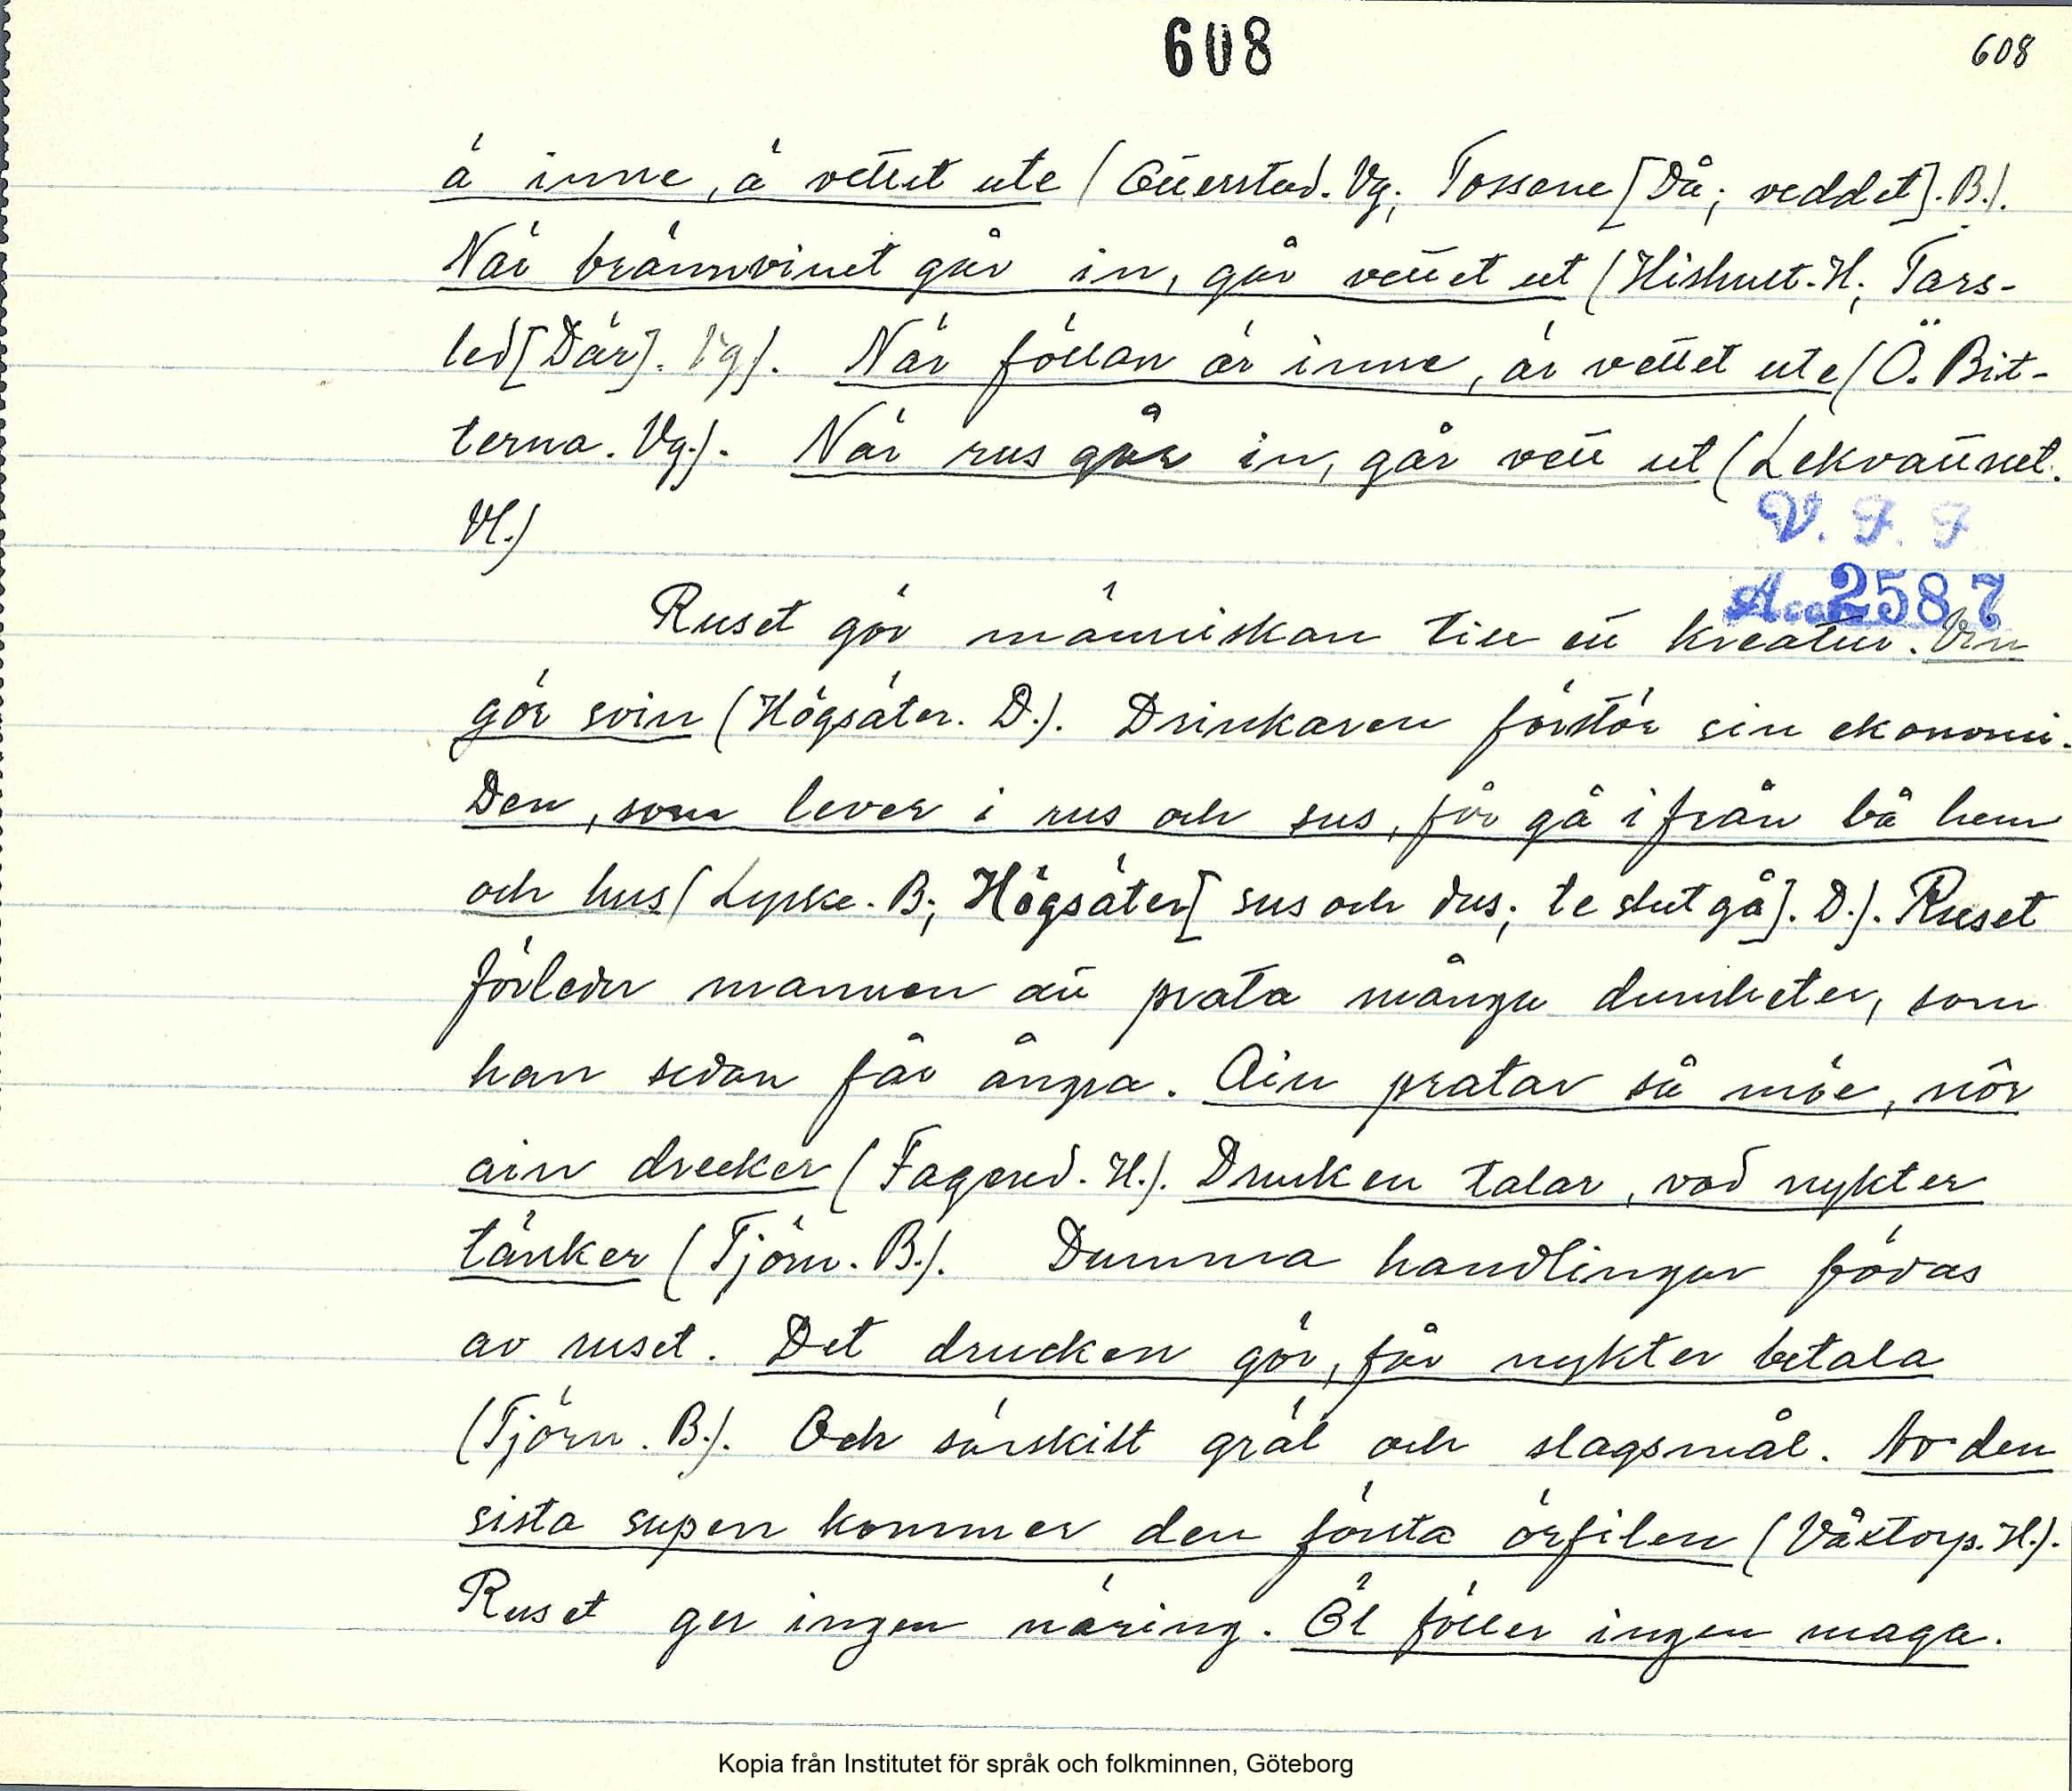 608
608
ä inne, ä vettet ute (Otterstad. Vg; Tossene [Då; veddet]. B.).
När brännvinet går in, går vettet ut (Hishult. H; Tars-
led [Där]. Vg). När föllan är inne, är vettet ute (Ö. Bit-
terna. Vg.). När rus går in, går vett ut (Lekvattnet.
Vl.)
V. F. F
Acc 2587
Ruset gör människan till ett kreatur. Vin
gör svin (Högsäter. D.). Drinkaren förstör sin ekonomi.
Den, som lever i rus och sus, får gå ifrån bå hem
och hus (Lyske. B; Högsäter [sus och dus; te slut gå]. D.). Ruset
förleder mannen att prata många dumheter, som
han sedan får ångra. Ain pratar så möe, nôr
ain drecker (Fagered. H.). Drucken talar, vad nykter
tänker (Tjörn. B.). Dumma handlingar födas
av ruset. Det drucken gör, får nykter betala
(Tjörn. B.). Och särskilt gräl och slagsmål. Av den
sista supen kommer den första örfilen (Våxtorp. H.).
Ruset ger ingen näring. Öl föller ingen maga.
Kopia från Institutet för språk och folkminnen, Göteborg